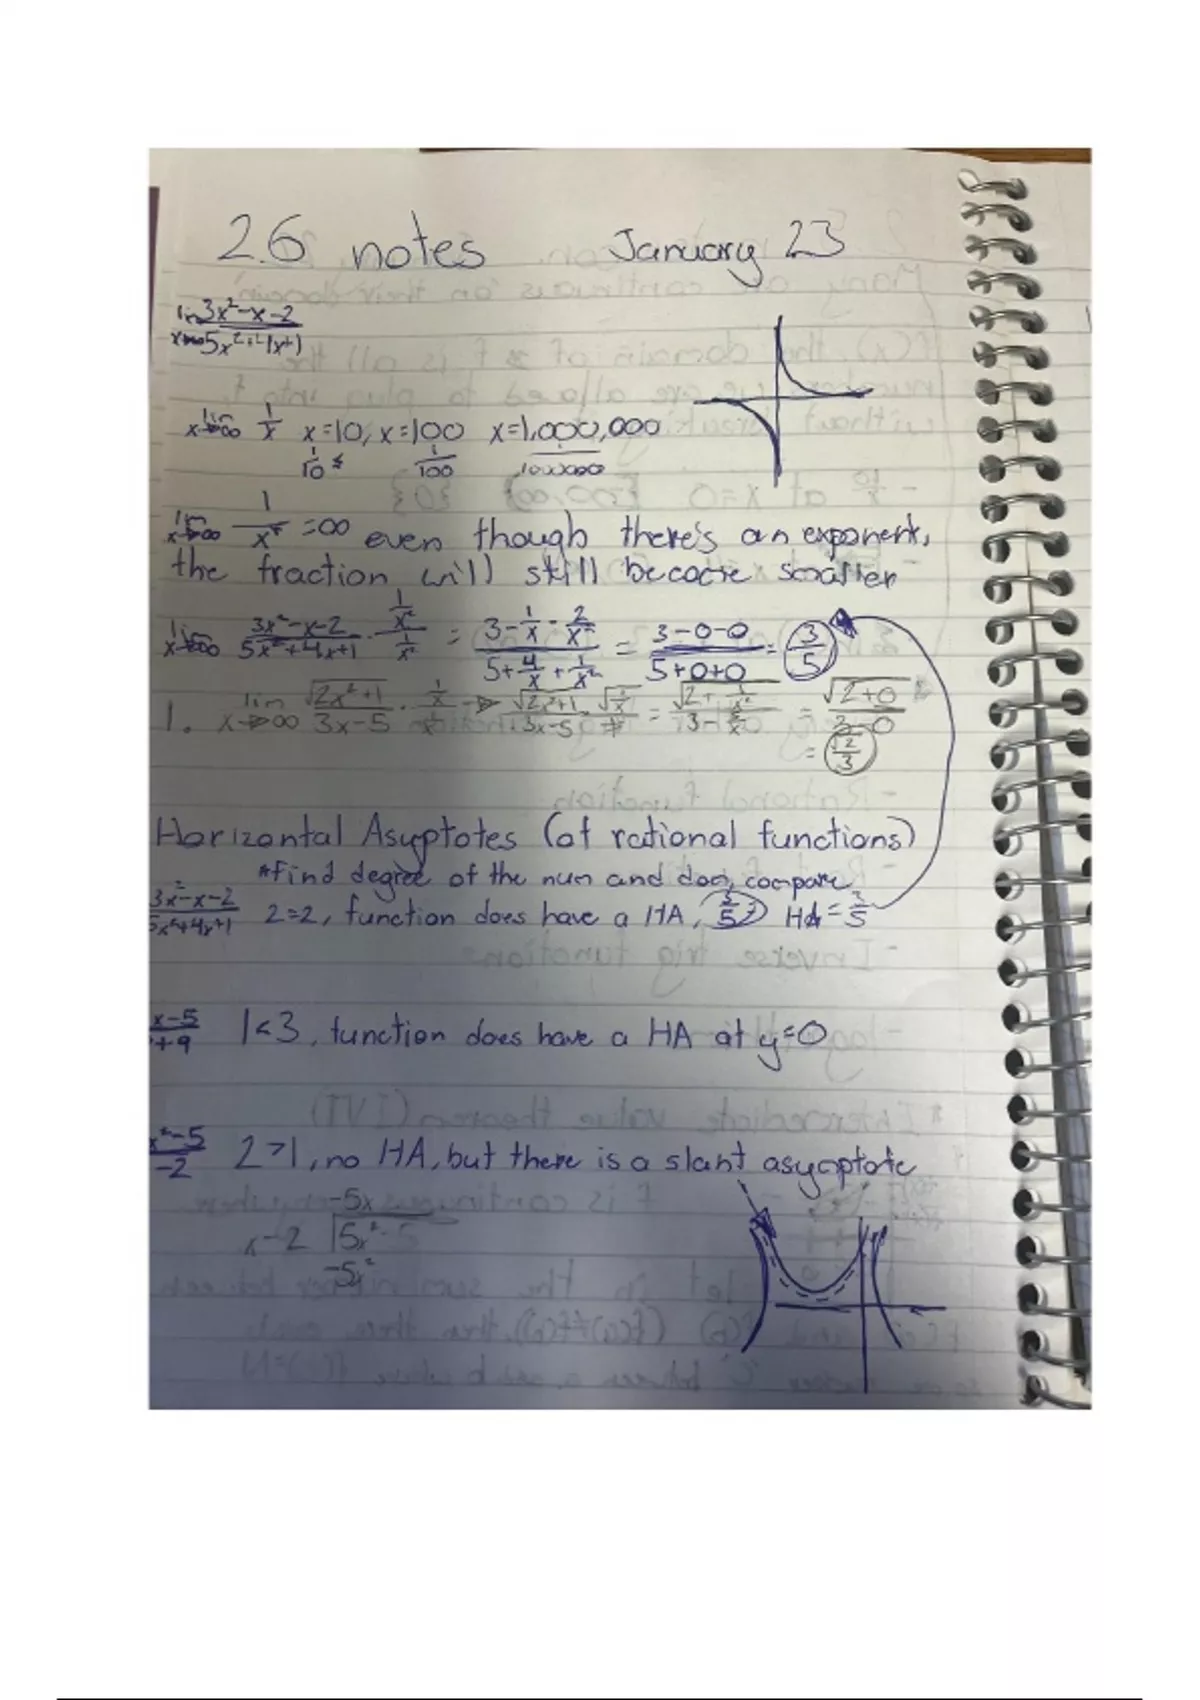 2.6 notes January 23
lim 3x²-x-2
x→∞ 5x²+4x+1
lim 1/x x=10, x=100 x=1,000,000
x→∞ 1/10 1/100 1/1000000
lim 1/xʳ =∞ even though there's an exponent,
x→∞
the fraction will still become smaller
lim 3x²-x-2 / 5x²+4x+1 · 1/x² / 1/x² = 3-1/x-2/x² / 5+4/x+1/x² = 3-0-0 / 5+0+0 = 3/5
x→∞
1. lim √2x²+1 / 3x-5 · 1/x / 1/x → √2x²+1 / 3x-5 = √2+1/x² / 3-5/x = √2+0 / 3-0
x→∞
= √2/3
Horizontal Asymptotes (of rational functions)
*find degree of the num and dom, compare
3x²-x-2 / 5x²+4x+1 2=2, function does have a HA, 3/5 HA=3/5
x-5 / +9 1<3, function does have a HA at y=0
x²-5 / -2 2>1, no HA, but there is a slant asymptote
-5x
x-2 5x²-5
-5x²